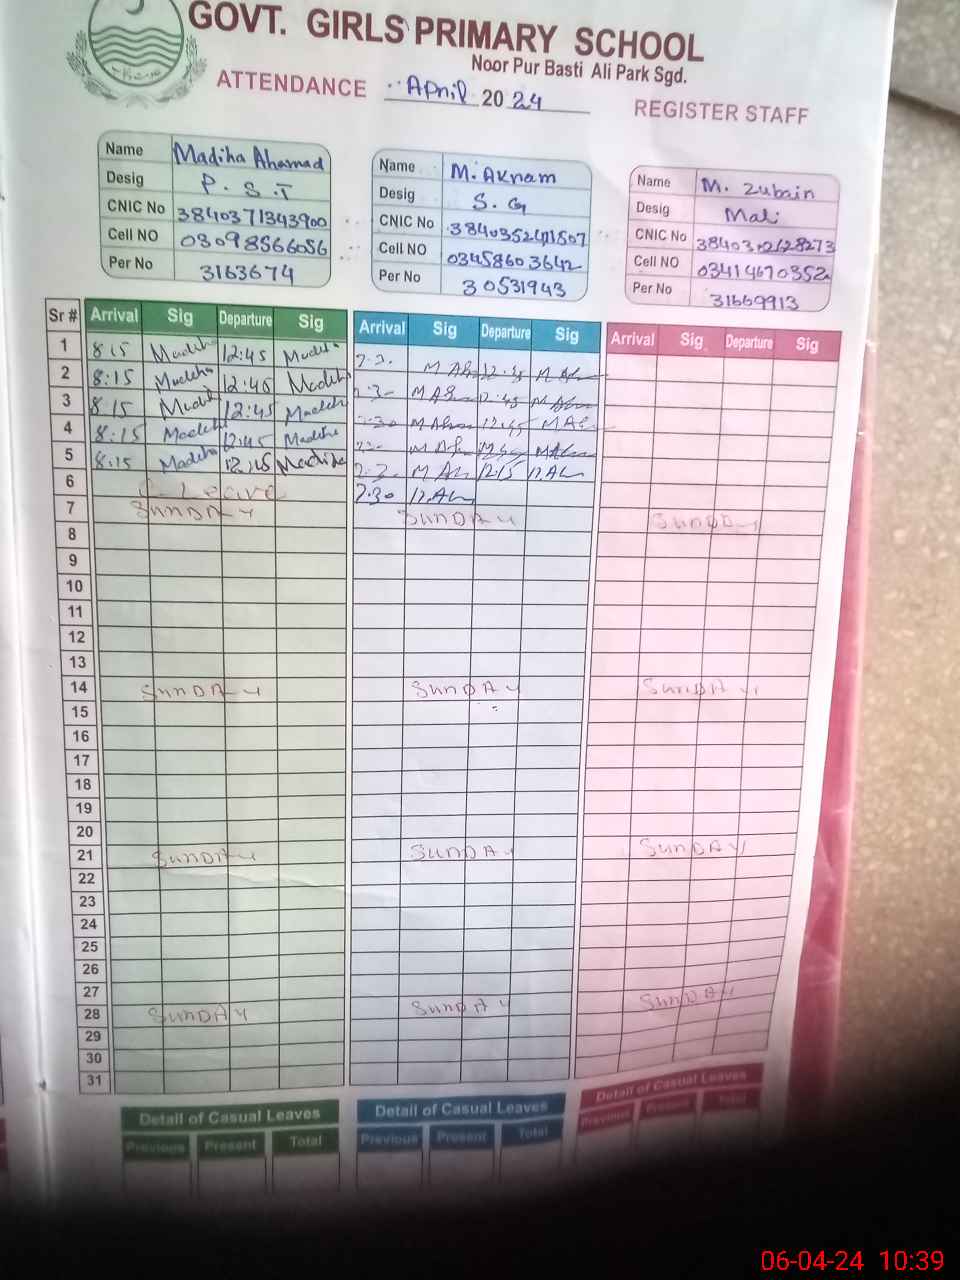 GOVT. GIRLS PRIMARY SCHOOL
Noor Pur Basti Ali Park Sgd.
ATTENDANCE April 2024 REGISTER STAFF
Name Madiha Ahamad
Desig P.S.T
CNIC No 3840371343900
Cell NO 03098566056
Per No 3163674
Name M. Akram
Desig S.G
CNIC No
Cell NO 03458603642
Per No 30531943
Name M. Zubair
Desig Mali
CNIC No
Cell NO 03414670352
Per No 31669913
Sr # Arrival Sig Departure Sig Arrival Sig Departure Sig Arrival Sig Departure Sig
1 8:15 Madiha 12:45 Madiha
2 8:15 Madiha 12:45 Madiha
3 8:15 Madiha 12:45 Madiha
4 8:15 Madiha 12:45 Madiha
5 8:15 Madiha 12:45 Madiha 12:15
6 C-Leave 7:30
7 SUNDAY SUNDAY SUNDAY
8
9
10
11
12
13
14 SUNDAY SUNDAY SUNDAY
15
16
17
18
19
20
21 SUNDAY SUNDAY SUNDAY
22
23
24
25
26
27
28 SUNDAY SUNDAY SUNDAY
29
30
31
Detail of Casual Leaves Detail of Casual Leaves Detail of Casual Leaves
Previous Present Total Previous Present Total Previous Present Total
06-04-24 10:39